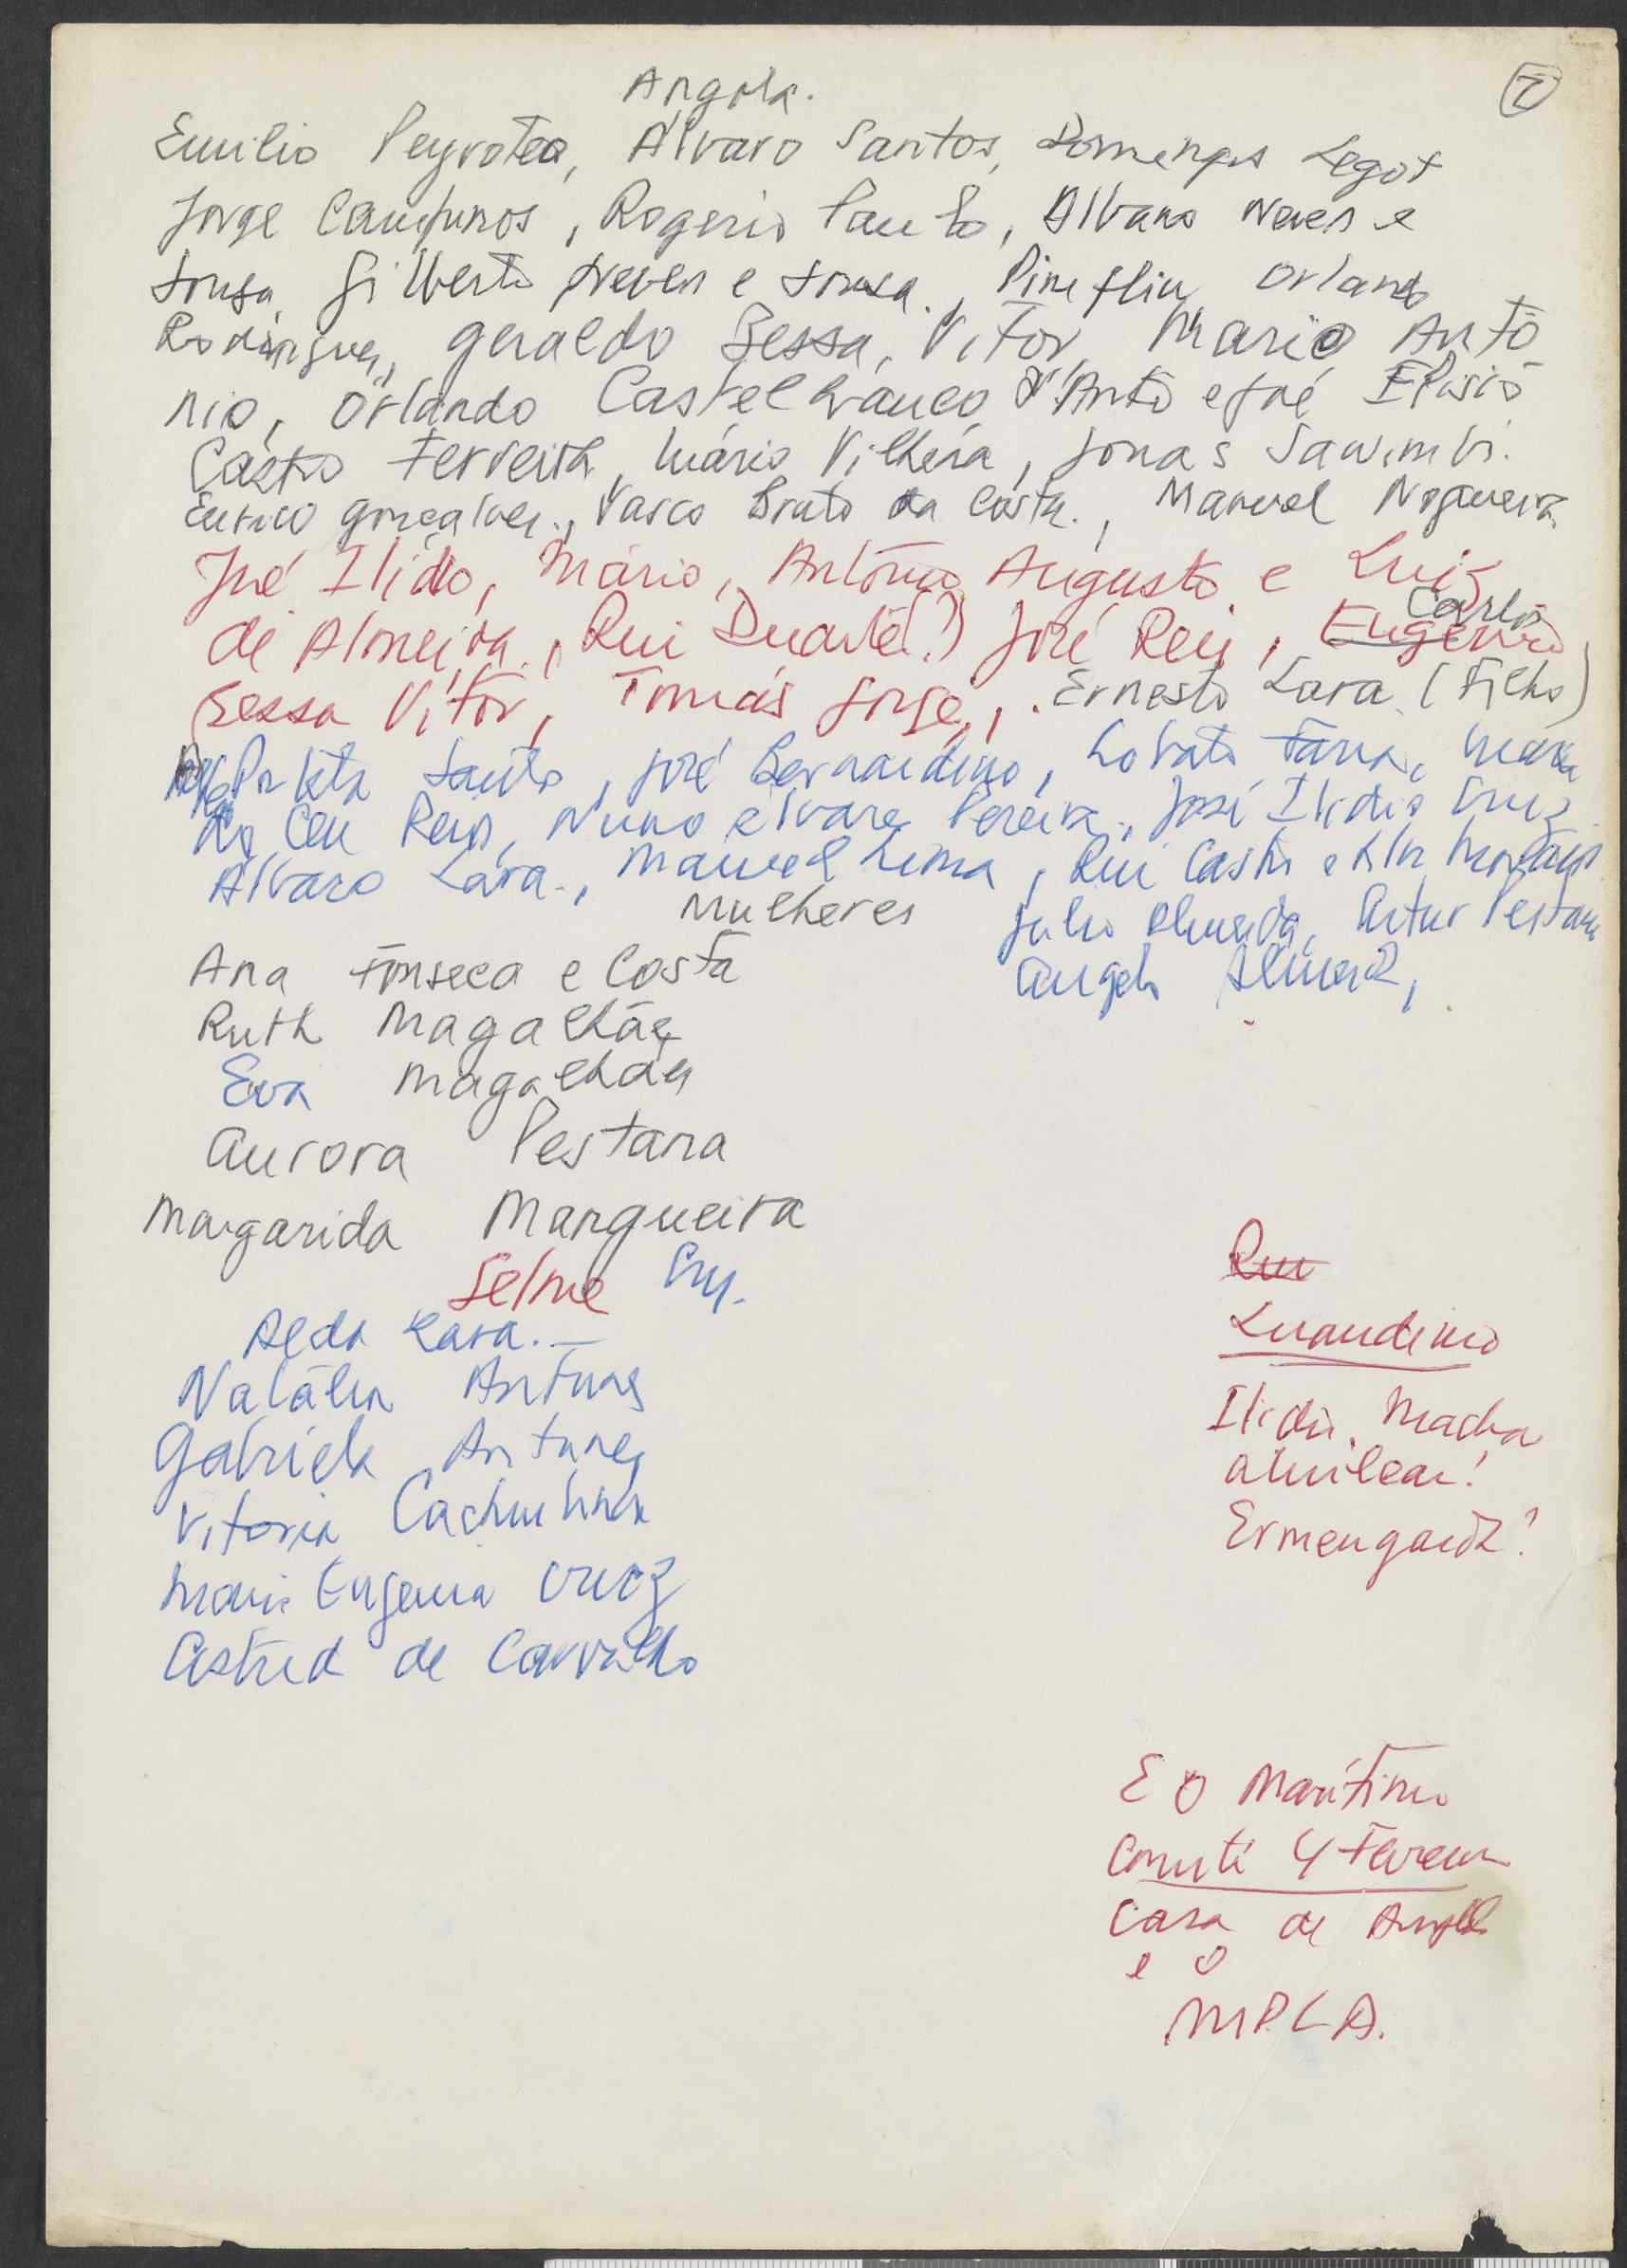 Angola.
7
Emilio Peyroteo, Alvaro Santos, Domingos Legot
Jorge Campinos, Rogerio Paulo, Albano Neves e
Sousa, Gilberto Neves e Sousa., Orlando
Rodrigues, Geraldo Bessa, Vitor, Mario Antó
nio, Orlando Castel branco, d'Antó e José Elisio
Castro Ferreira, Mário Vilhena, Jonas Sawimbi.
Eurico Gonçalves., Vasco Prato da Costa., Manuel Nogueira
José Ilídio, Mário, António, Augusto e Luiz
de Almeida., Rui Duarte(?) José Reis, Eugénio
Carlos
Bessa Vitor, Tomás Jorge,. Ernesto Lara (Filho)
Santo, José Bernardino, Lobato Faria, Maria
do Ceu Reis, Nuno Alvares Pereira., José Ilidio Cruz
Alvaro Lara., Manuel Lima, Rui Castro e
Mulheres
Julio Almeida, Artur Pestana
Angelo Almeida,
Ana Fonseca e Costa
Ruth Magalhães
Eva Magalhães
Aurora Pestana
Margarida Mangueira
Selme Cruz.
Rui
Alda Lara.
Luandino
Natália Antunes
Ilidio Machado
Gabriela Antunes
Amilcar!
Vitoria
Ermengarda?
Maria Eugenia Cruz
Astrid de Carvalho
E o Marítimo
Comité 4 Fevereiro
Casa de Angola
e o
MPLA.